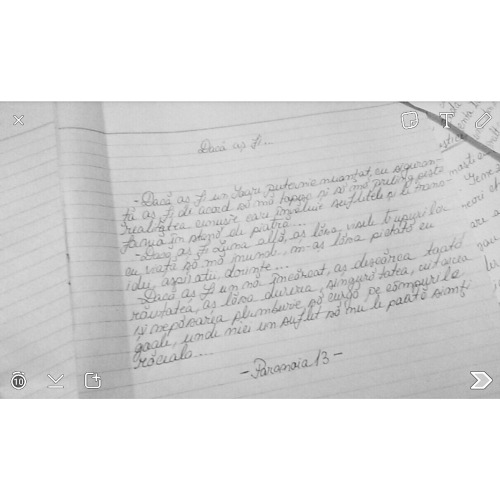 Dacă aș fi...
- Dacă aș fi un puternic nuanțat, cu siguran-
ță aș fi de acord să mă topesc și să mă preling peste
realitatea cenușie care învăluie sufletele și le trans-
formă în stană de piatră...
- Dacă aș fi Luna albă, aș lăsa, visele trupurilor
cu viață să mă inunde, m-aș lăsa pictată cu
idei, aspirații dorințe...
Dacă aș fi un nor încercat, aș descărca toată
răutatea, aș lăsa durerea, singurătatea, cu
și nepăsarea plumburie să curgă pe câmpurile
goale, unde nici un suflet să nu le poată simți
răceala...
- Paranoia 13 -
T
10